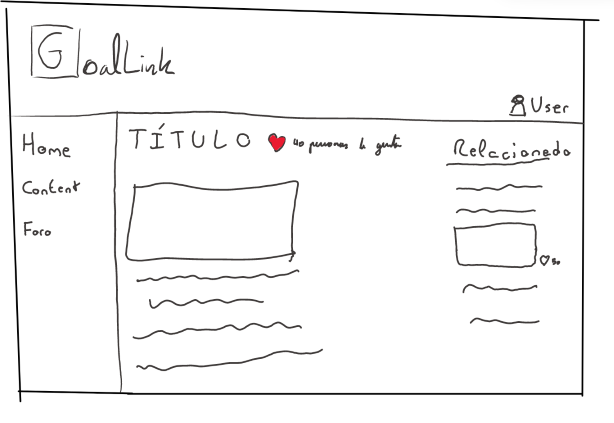 GoalLink
User
Home
Content
Foro
TÍTULO ❤ 40 personas le gusta
Relacionado
♡ 50